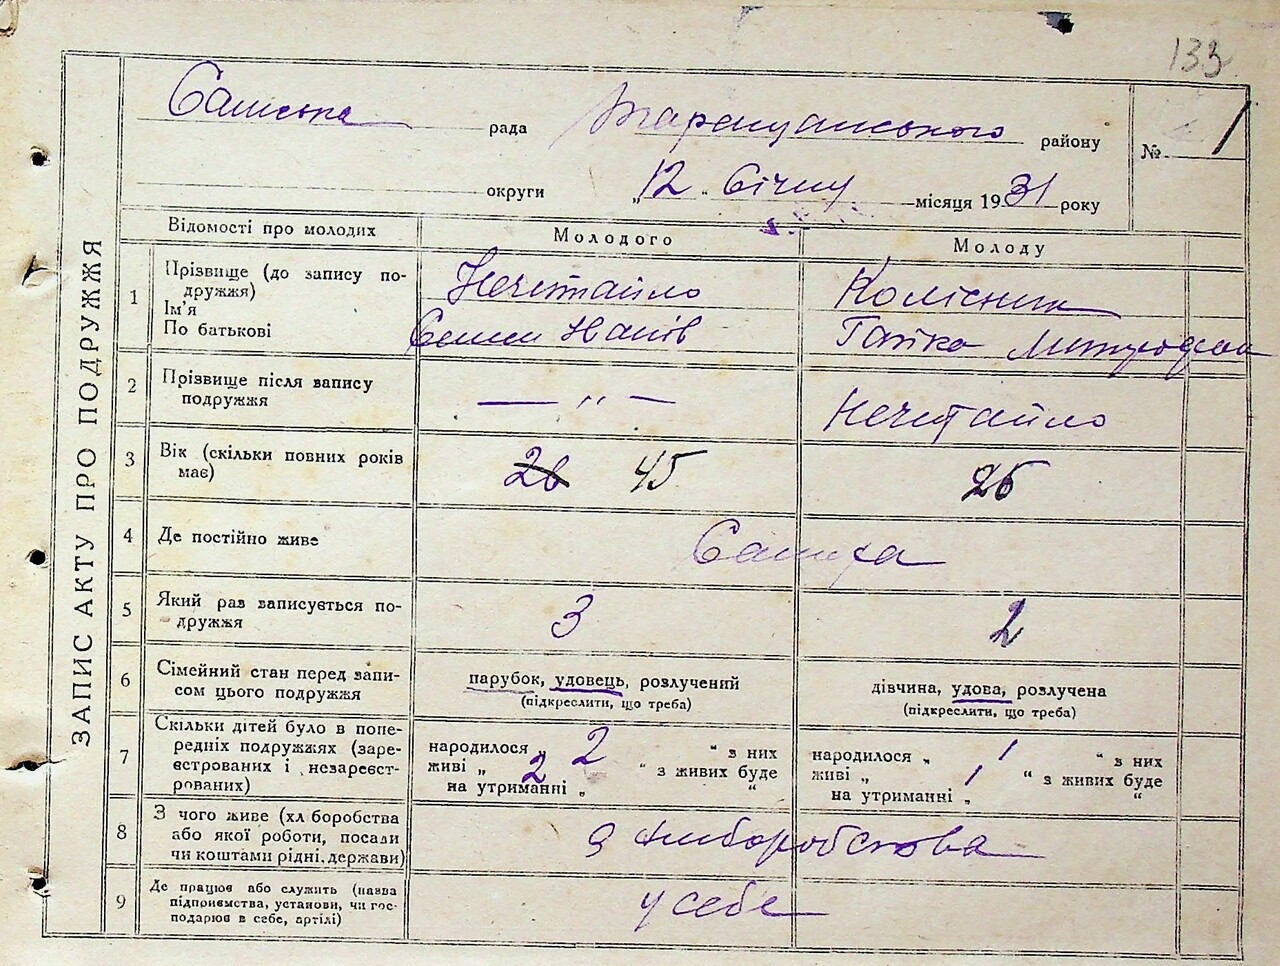 133
ЗАПИС АКТУ ПРО ПОДРУЖЖЯ
рада Таращанського району
№ 1
округи „12" Січня місяця 1931 року
Відомості про молодих Молодого Молоду
1 Прізвище (до запису подружжя) Нечитайло Колісник
Ім'я
По батькові Семен Іванів Гапка
2 Прізвище після запису подружжя — ,, — Нечитайло
3 Вік (скільки повних років має) 26 45 26
4 Де постійно живе
5 Який раз записується подружжя 3 2
6 Сімейний стан перед записом цього подружжя
парубок, удовець, розлучений
(підкреслити, що треба)
дівчина, удова, розлучена
(підкреслити, що треба)
7 Скільки дітей було в попередніх подружжях (зареєстрованих і незареєстрованих)
народилося „ 2 " з них
живі „ 2 " з живих буде
на утриманні „ "
народилося „ 1 " з них
живі „ 1 " з живих буде
на утриманні „ "
8 З чого живе (хліборобства або якої роботи, посади чи коштами рідні, держави) З хліборобства
9 Де працює або служить (назва підприємства, установи, чи господарює в себе, артілі) у себе